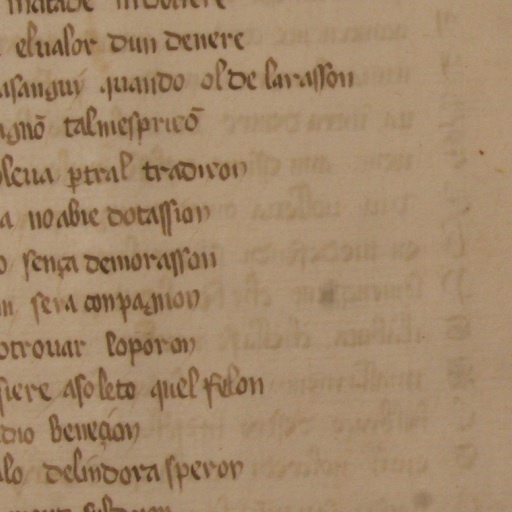 elualor dun denere
asanguy quando ol de larasson
talmespricõ
oleua ꝑtral tradiron
a no abie dotassion
o sença demorasson
sera conpagnion
otrouar loporon
siere asoleto quel felon
dio beneçion
alo delindora speron